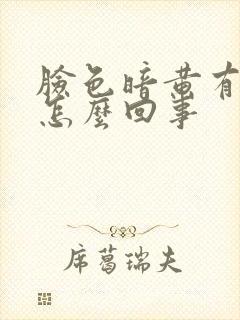 臉色暗黃有
怎麼回事
席葛瑞夫